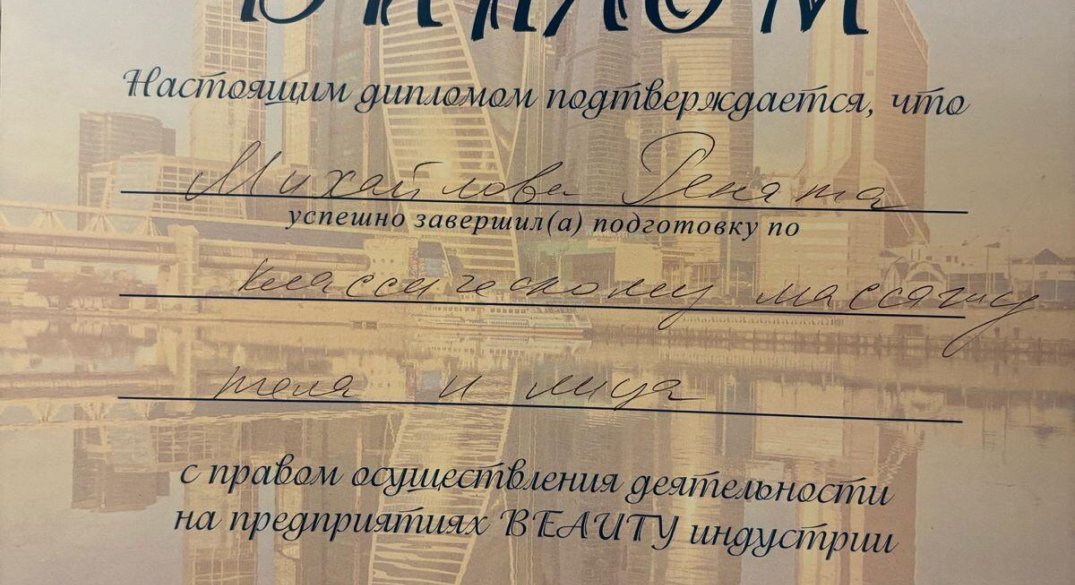 ДИПЛОМ
Настоящим дипломом подтверждается, что
Михайлова Рената
успешно завершил(а) подготовку по
классическому массажу
тела и лица
с правом осуществления деятельности
на предприятиях BEAUTY индустрии